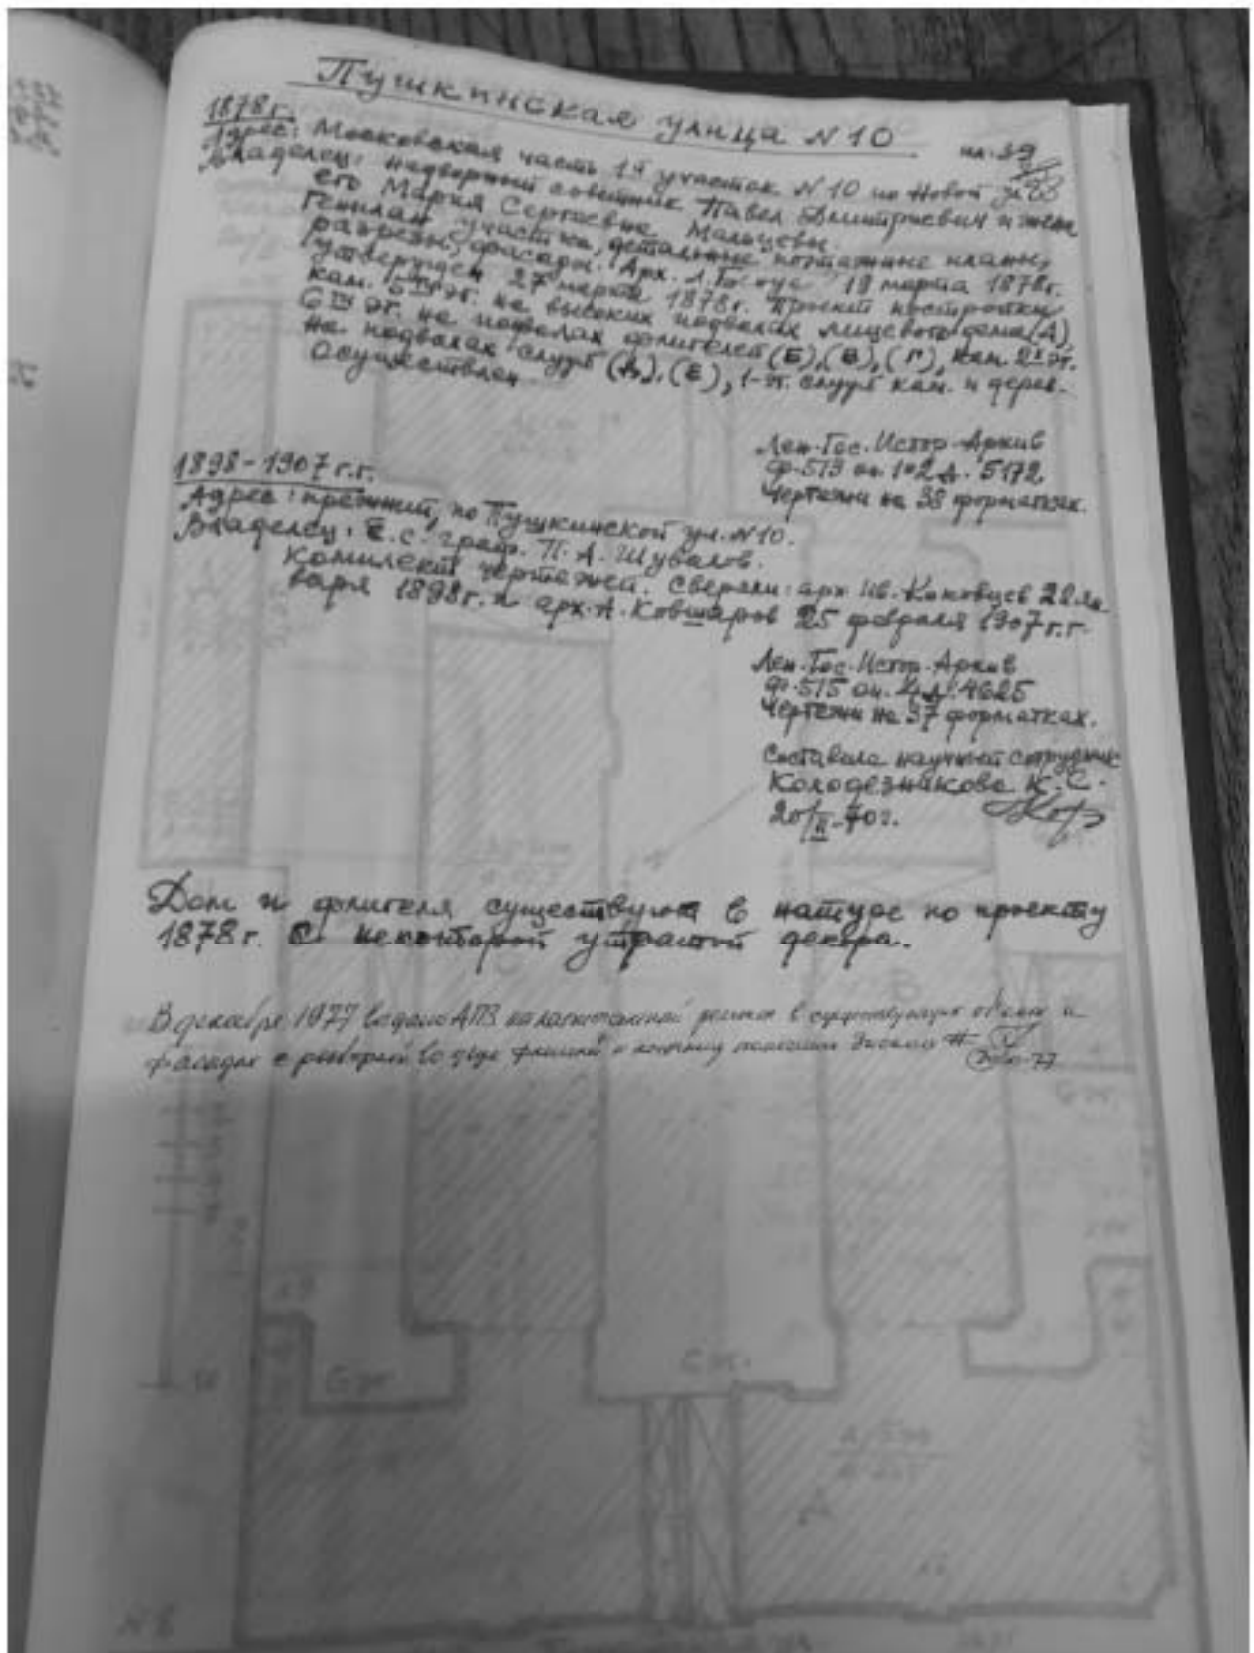 Пушкинская улица N 10
1878 г.
Адрес: Московская часть 1й участок N 10 по Новой ул.
Владелец: надворный советник Павел Дмитриевич и жена
его Мария Сергеевна Мальцевы.
Генплан участка, детальные поэтажные планы,
разрезы, фасады. Арх. 19 марта 1878г.
Утвержден 27 марта 1878г. Проект постройки
кам. 5ТИ эт. на высоких подвалах лицевого дома (А),
6ТИ эт. на подвалах флигелей (Б), (В), (Г), кам. 2х эт.
на подвалах служб (Д), (Е), 1-эт. служб кам. и дерев.
Осуществлен.
Лен. Гос. Истор. Архив
Ф-513 оп. 102 д. 5172
Чертежи на 38 форматках.
1898-1907 г.г.
Адрес: прежний, по Пушкинской ул. N10.
Владелец: Е.С. граф. П. А. Шувалов.
Комплект чертежей. Сверяли: арх. Ив. Коковцев 22 ян-
варя 1898г. и арх. А. Ковшаров 25 февраля 1907 г.г.
Лен. Гос. Истор. Архив
Ф-515 оп. 4 д. 4625
Чертежи на 37 форматках.
Составила научный сотрудник
Колодезникова К. С.
20/II-70г.
Дом и флигеля существуют в натуре по проекту
1878г. с некоторой утратой декора.
В декабре 1977 выдано АПЗ на капитальный ремонт в существующих объемах и
фасадах с разборкой во дворе
6 эт.
6 эт.
А